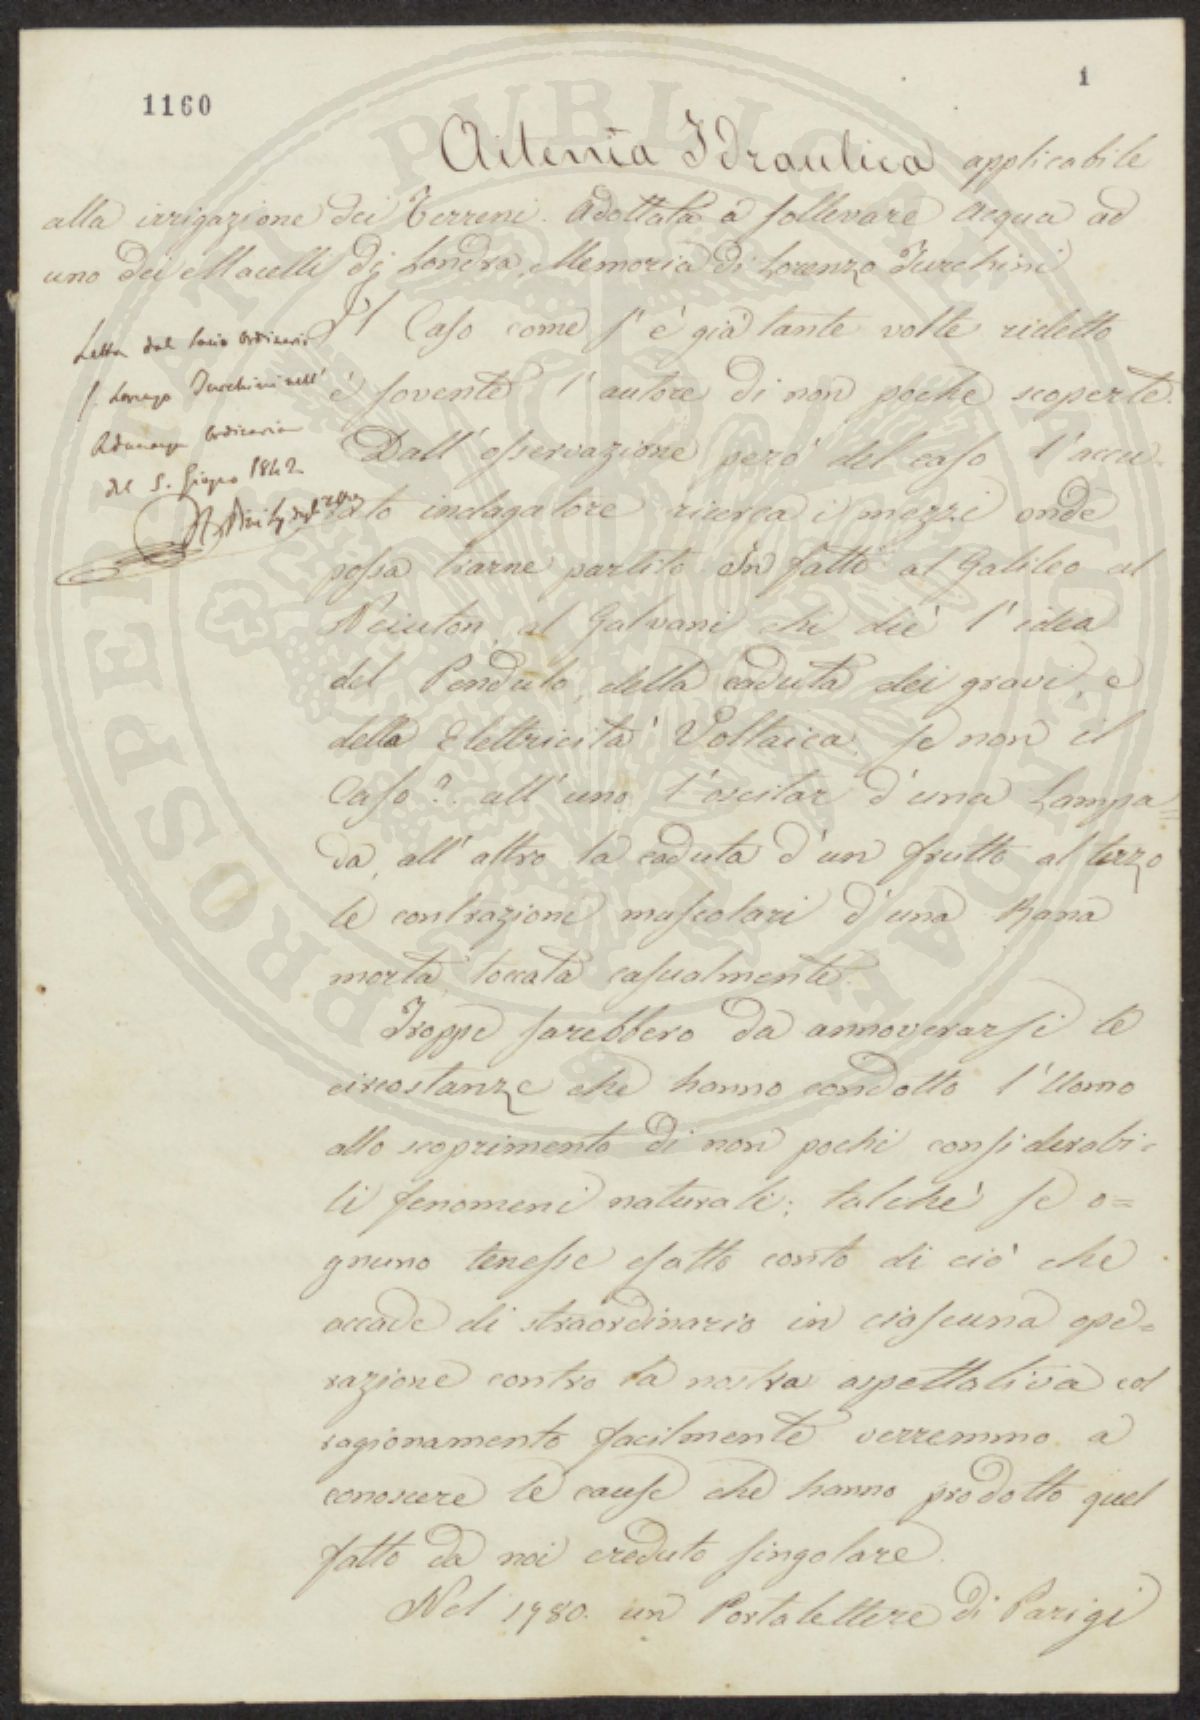 1160
1
Aitenia Idraulica applicabile
alla irrigazione dei Terreni. Adottata a sollevare Acqua ad
uno dei Macelli di Londra, Memoria di Lorenzo Turchini
Il Caso come s'è già tante volte ridetto
è sovente l'autore di non poche scoperte.
Dall'osservazione però del caso l'accu-
rato indagatore ricerca i mezzi onde
possa trarne partito. In fatti al Galileo al
Neiuton, al Galvani chi diè l'idea
del Pendulo, della caduta dei gravi, e
della Elettricità Voltaica, se non il
Caso? all'uno l'oscilar d'una Lampa=
da, all'altro la caduta d'un frutto al terzo
le contrazioni muscolari d'una Rana
morta toccata casualmente.
Troppe sarebbero da annoverarsi le
circostanze che hanno condotto l'Uomo
allo scoprimento di non pochi considerabi-
li fenomeni naturali; talchè se o=
gnuno tenesse esatto conto di ciò che
accade di straordinario in ciascuna ope=
razione contro la nostra aspettativa col
ragionamento facilmente verremmo a
conoscere le cause che hanno prodotto quel
fatto da noi creduto singolare.
Nel 1780. un Portalettere di Parigi
Letta dal Socio Ordinario
S. Lorenzo Turchini nell'
Adunanza Ordinaria
del 5. Giugno 1842
PROSPERITATI PUBLICAE AUGENDAE